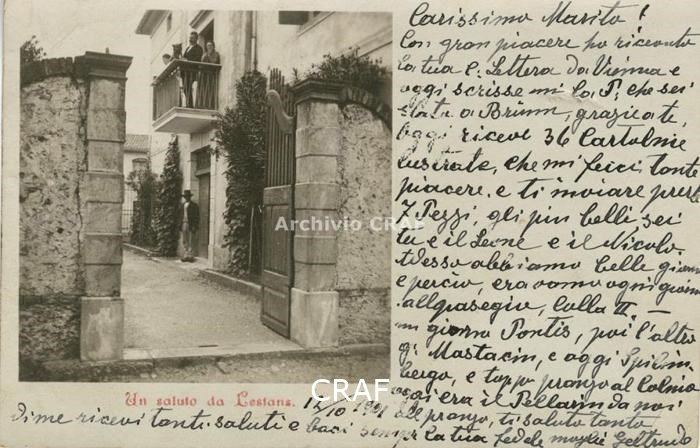 Carissimo Marito!
Con gran piacere ho ricevuto
la tua C. Lettera da Vienna e
oggi scrisse mi la P. che sei
stata a Brünn, grazie a te,
oggi riceve 36 Cartolnie
lustrate, che mi feci tante
piacere e ti inviare
7 Pezzi, gli piu belli sei
tu e il Leone e il Nicolo.
Adesso abbiamo belle giorn
e percio, era vamo ogni giorn
all pasegio, colla II –
un giorno Pontis, poi l'altro
gi Mastacin, e oggi Spilim
bergo, e toppo pranzo al Colnio
oggi era il Pellarin da noi
all pranzo, ti saluto tanto
Archivio CRAF
Un saluto da Lestans.
CRAF
12/10 1901
di me ricevi tanti saluti e baci sempre la tua fedele moglie Geltrude